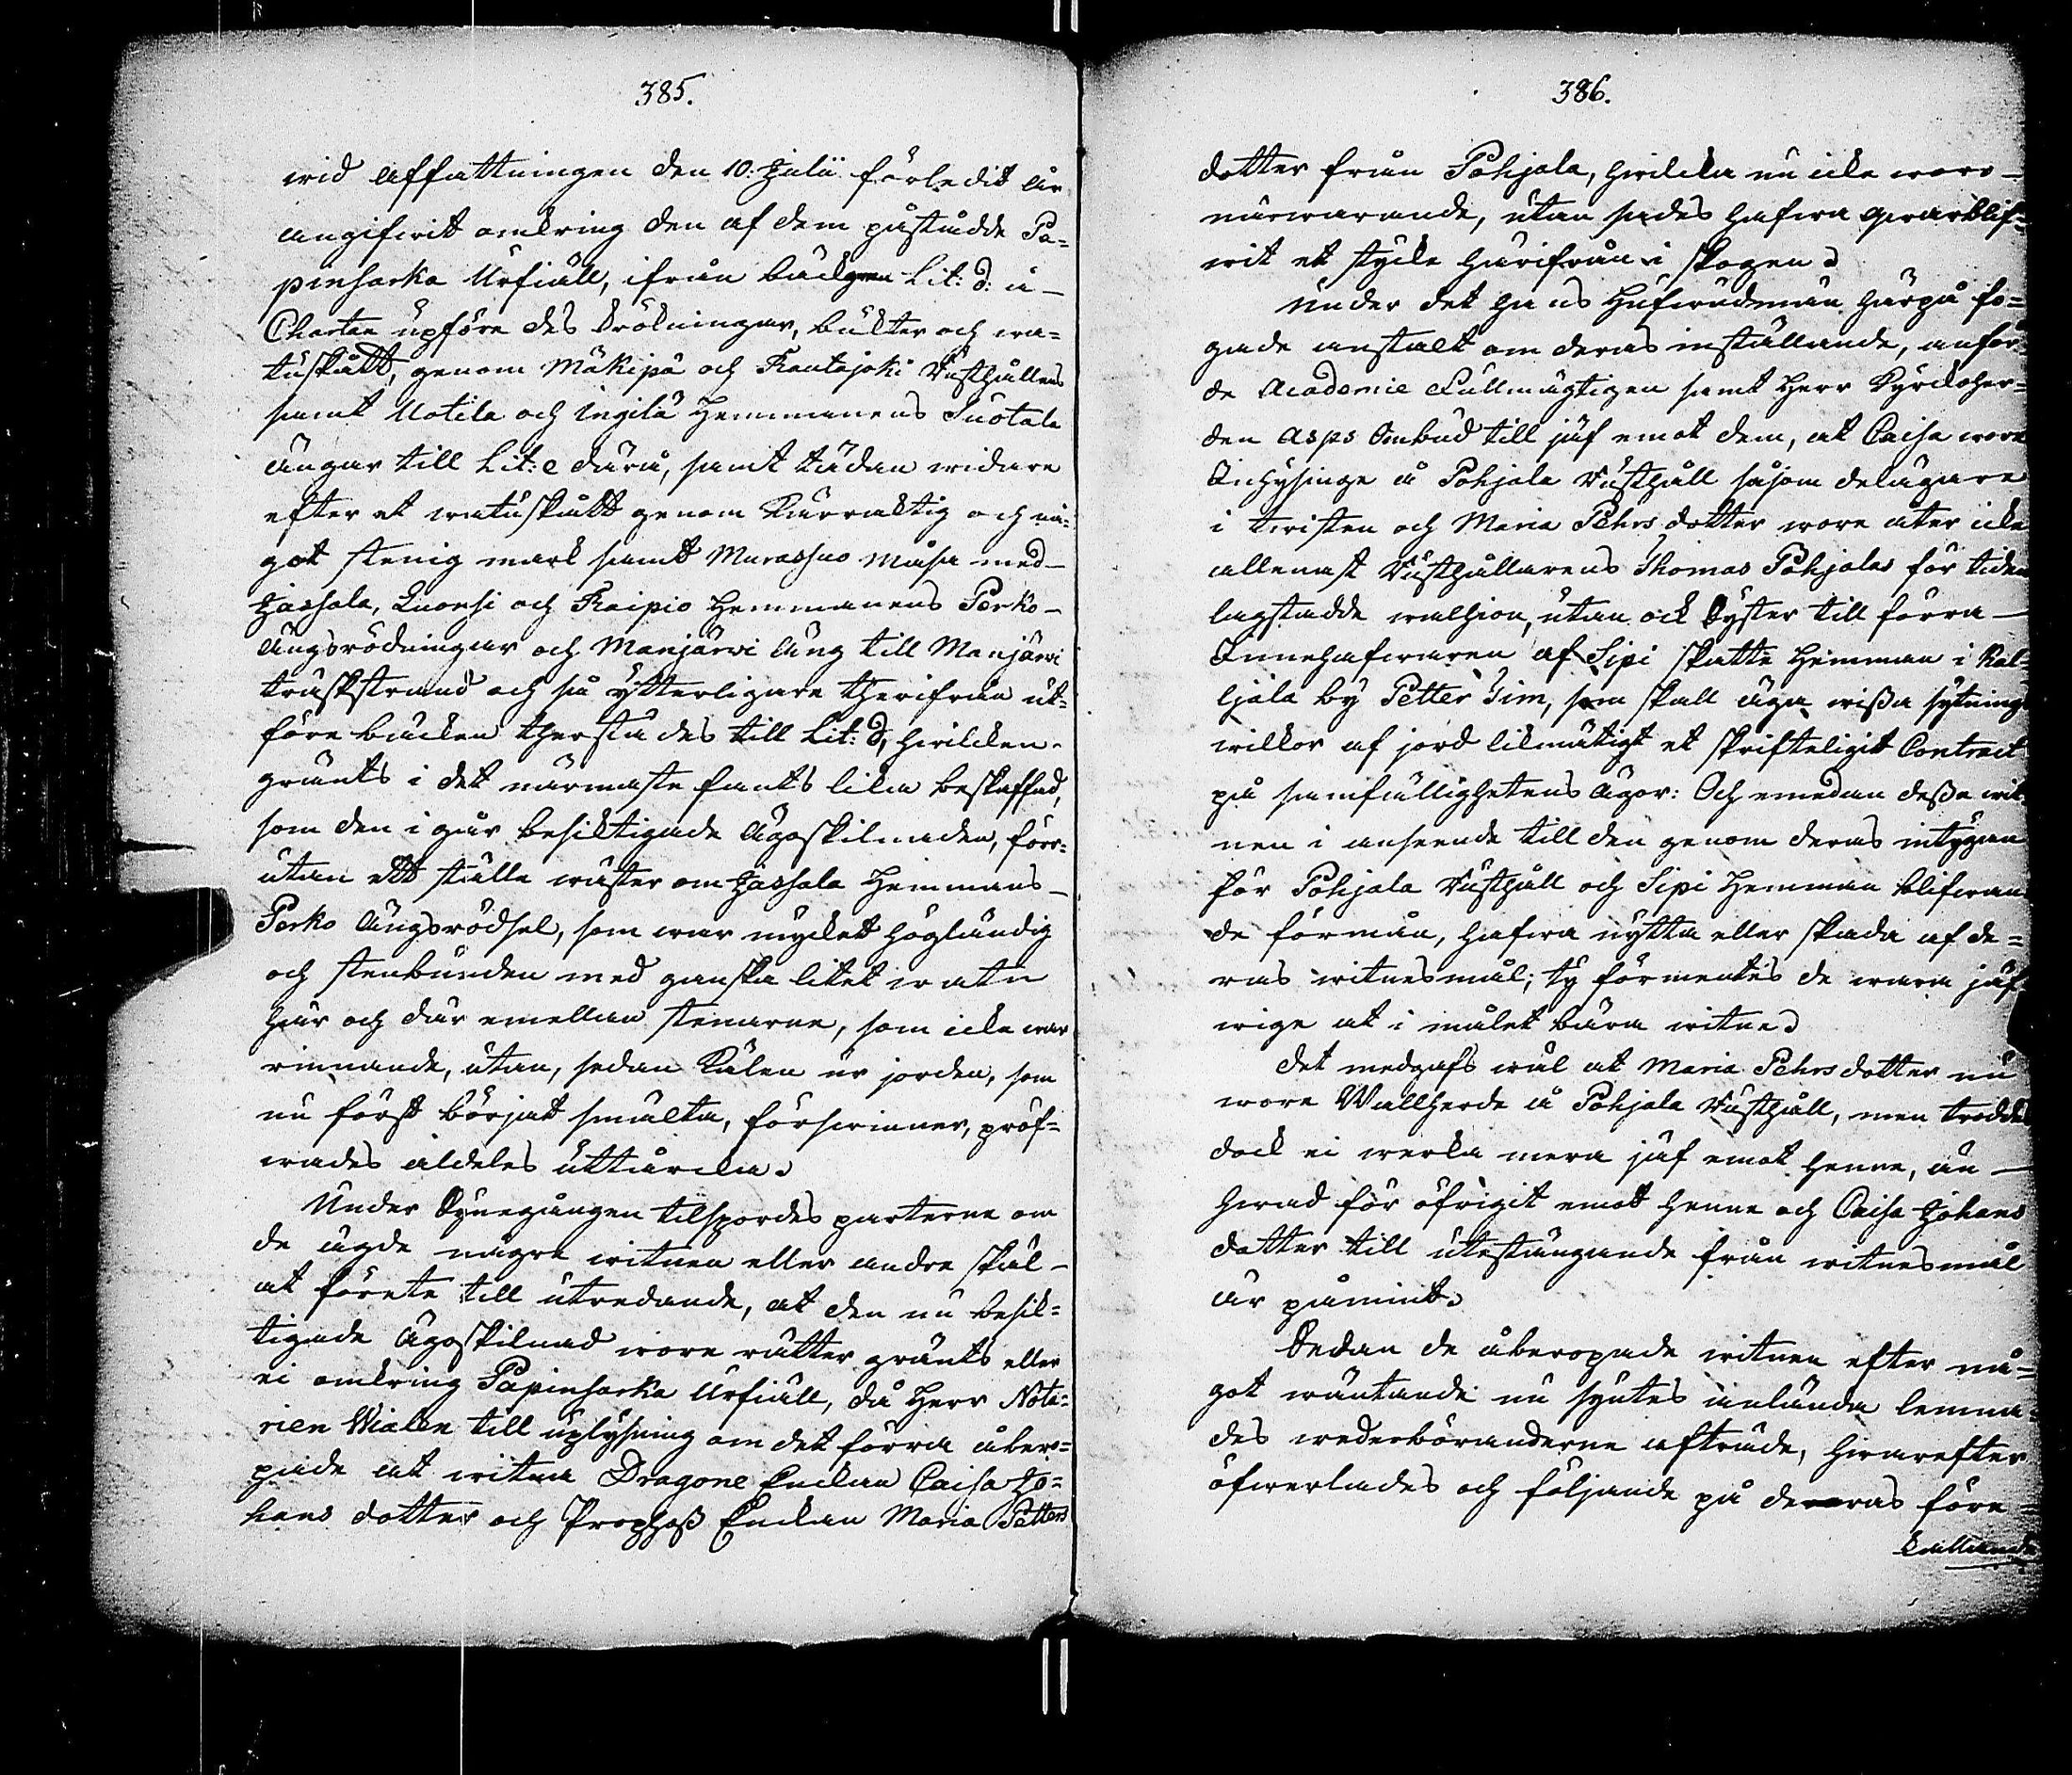 385.
wid affattningen den 10: Julii förledit år
angifwit omkring den af dem påstådde Pa-
pinsarka Urfiäll, ifrån bäcken Lit: d: å
Chartan upföre des krökningar, bukter och wa-
tuskått, genom Mäkipä och Rautajoki Rusthållens
samt Uotila och Ingilä Hemmanens Suotala
ängar till Lit: e därå, samt dädan widare
efter et watuskått genom Kärraktig och nå-
got stenig mark samt Murassuo måsa med
Jassala, Luonsi och Raipio Hemmanens Perko
Ängsrödningar och Manjärwi äng till Manjärwi
träskstrand och så ytterligare therifrån ut-
före bäcken thersädes till Lit: d, hwilcken
gränts i det närmaste fants lika beskaffad,
som den i går besiktigade Ägoskilnaden, förr-
utan ett ställe wäster om Jassala Hemmans
Perko Ängsrödsel, som war mycket högländig
och stenbunden med ganska litet watn
här och där emellan stenarne, som icke war
rinnande, utan, sedan Kälen ur jorden, som
nu först börjat smälta, förswinner, pröf-
wades aldeles uttårcka.
Under Synegången tilspordes parterne om
de ägde några witnen eller andre skäl
at förete till utredande, at den nu besik-
tigade Ägoskilnad wore rätter gränts eller
ei omkring Papinsarka Urfiäll, då Herr Nota-
rien Wialen till uplysning om det förra åbero-
pade at witna Dragone Enckan Caisa Jo-
hans dotter och Prophoss Enckan Maria Petters
386.
dotter från Pohjala, hwilcka nu icke woro
närwarande, utan sades hafwa qwarblif-
wit et stycke härifrån i skogen.
Under det hans Häfwudman härpå fo-
gade anstalt om deras inställande, anför-
de Academie Fullmägtigen samt Herr Kyrckoher-
den Asps Ombud till jäf emot dem, at Caisa wore
Inhysinge å Pohjala Rusthåll såsom delägare
i twisten och Maria Pehrs dotter wore åter icke
allenast Rusthållarens Thomas Pohjalas för tiden
lagstadde wallhion, utan ock Syster till förra
Innehafwaren af Sipi skatte Hemman i Kal-
ljala by Petter Sim, som skall äga wissa sytnings
willkor af jord likmätigt et skrifteligit Contract
på samfällighetens ägor: Och emedan dessa wit-
nen i anseende till den genom deras intygan
för Pohjala Rusthåll och Sipi Hemman blifwan-
de förmån, hafwa nytta eller skada af de-
ras witnesmål; ty förmentes de wara jäf-
wige at i målet bära witne.
Det medgafs wäl at Maria Pehrs dotter nu
wore Wallherde å Pohjala Rusthåll, men trodde
dock ei wercka mera jäf emot henne, än
hwad för öfrigit emot henne och Caisa Johans
dotter till utestängande från witnesmål
är påmint.
Sedan de åberopade witnen efter nå-
got wäntande nu syntes anlända lemna-
des wederböranderne afträde, hwarefter
öfwerlades och följande på deras före-
kallande